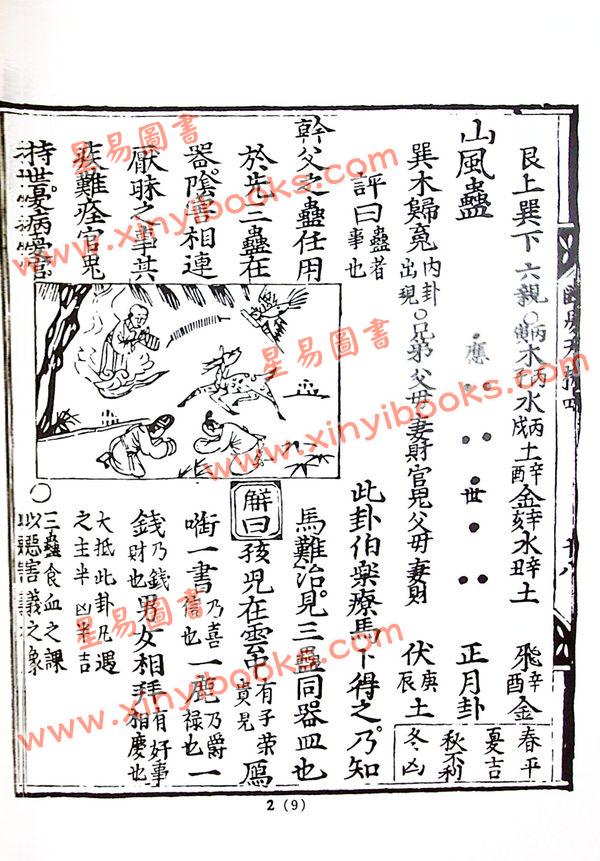 艮上巽下六親〇丙寅木丙子水丙戌土辛酉金辛亥水辛丑土 飛辛酉金
山風蠱 應 世 正月卦
巽木歸魂内卦出現〇兄弟父母妻財官鬼父母妻財 伏庚辰土
春平
夏吉
秋不利
冬凶
評曰蠱者事也
幹父之蠱任用
於先三蠱在
器陰害相連
厭昧之事其
疾難痊官鬼
持世憂病
此卦伯樂療馬卜得之乃知
馬難治見三蠱同器皿也
解曰孩兒在雲中有子榮貴見鴈
啣一書乃喜信也一鹿乃爵祿也一
錢乃錢財也男女相拜有好事相慶也
大抵此卦凡遇
之主半凶半吉
〇三蠱食血之課
以惡害義之象
2 (9)
星易圖書
www.xinyibooks.com
星易圖書
www.xinyibooks.com
星易圖書
www.xinyibooks.com